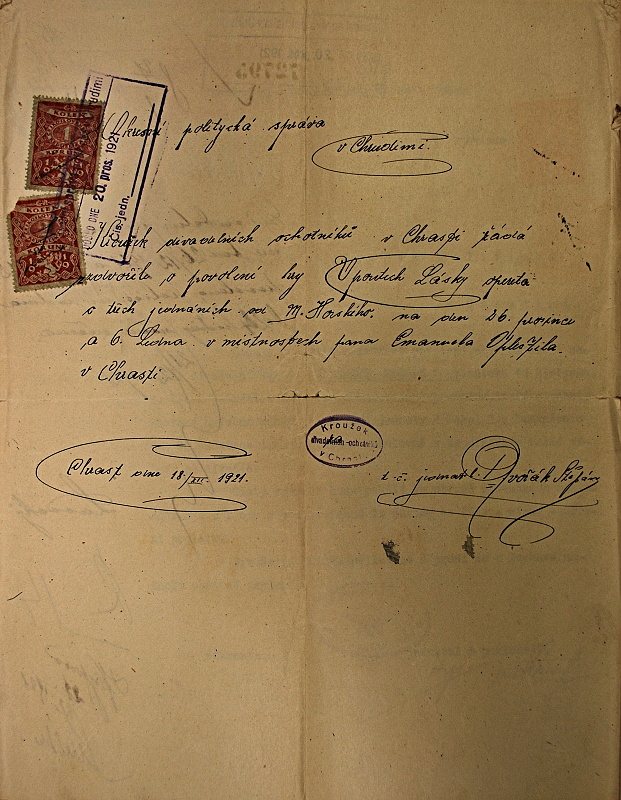 Okresní politycká správa
v Chrudimi.
DNE 20. pros. 1921
Čís. jedn.
Kroužek divadelních ochotníků v Chrasti žádá
zdvořile o povolení hry V poutech Lásky opereta
o třech jednáních od M. Horského. na den 26. prosince
a 6. Ledna v místnostech pana Emanuela
v Chrasti
Kroužek
divadelních ochotníků
v Chrasti
Chrast dne 18./XII. 1921.
t. č. jednatel. Dvořák Štěpán